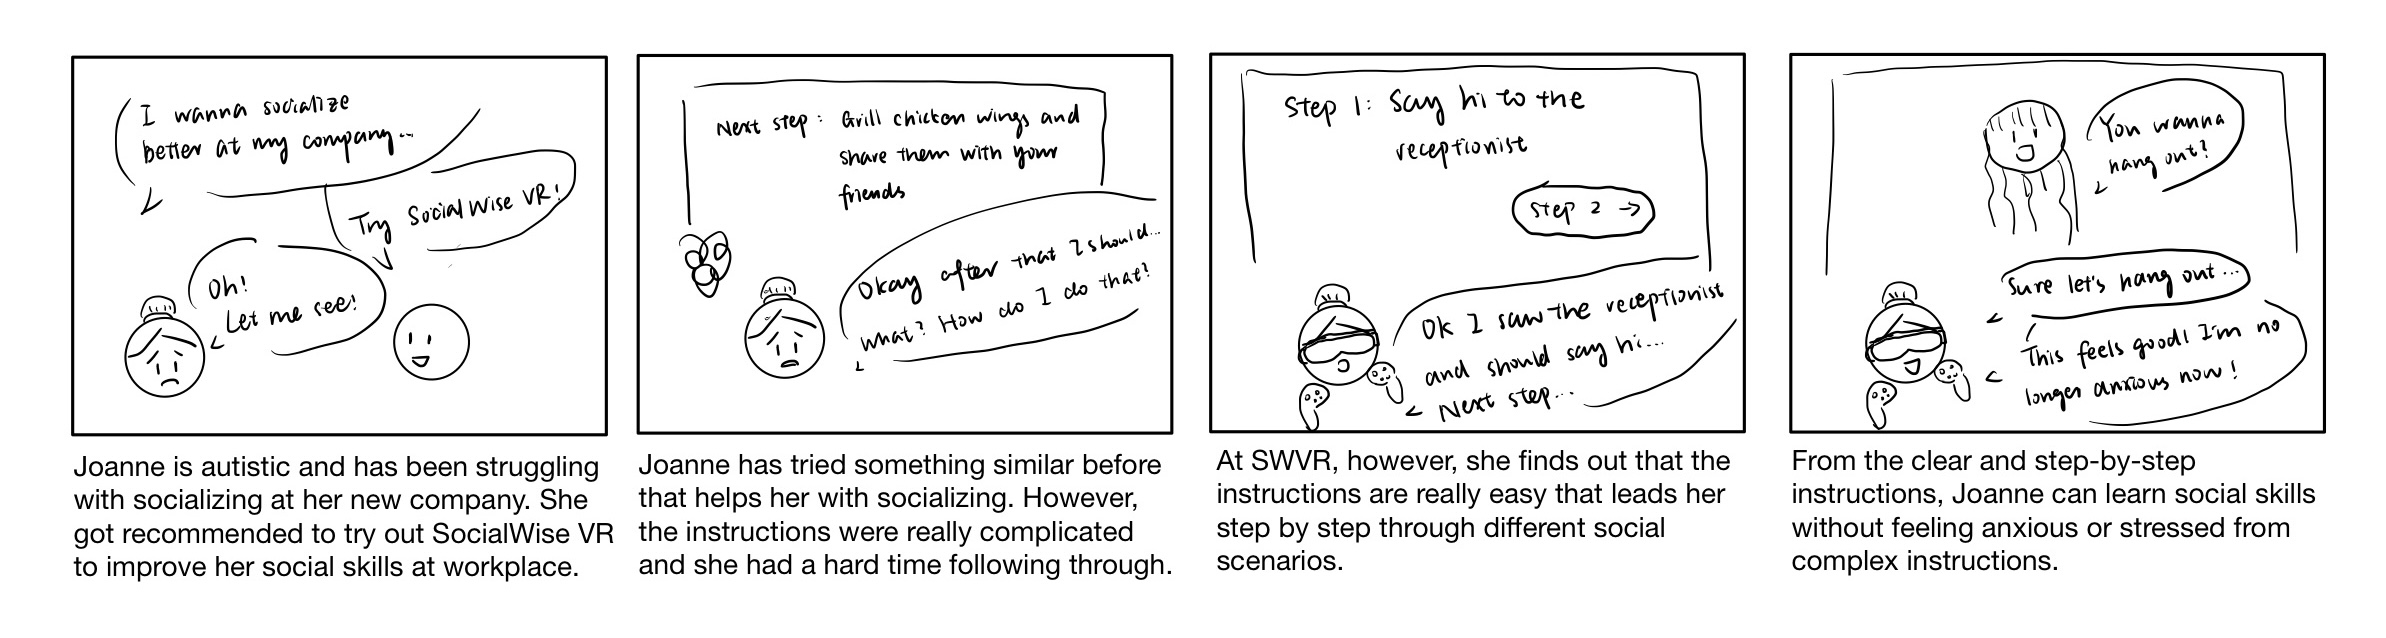 I wanna socialize
better at my company...
Try SocialWise VR!
Oh!
Let me see!
Joanne is autistic and has been struggling
with socializing at her new company. She
got recommended to try out SocialWise VR
to improve her social skills at workplace.
Next step: Grill chicken wings and
share them with your
friends
Okay after that I should...
what? How do I do that?
Joanne has tried something similar before
that helps her with socializing. However,
the instructions were really complicated
and she had a hard time following through.
Step 1: Say hi to the
receptionist
Step 2 →
Ok I saw the receptionist
and should say hi...
Next step...
At SWVR, however, she finds out that the
instructions are really easy that leads her
step by step through different social
scenarios.
You wanna
hang out?
Sure let's hang out...
This feels good! I'm no
longer anxious now!
From the clear and step-by-step
instructions, Joanne can learn social skills
without feeling anxious or stressed from
complex instructions.